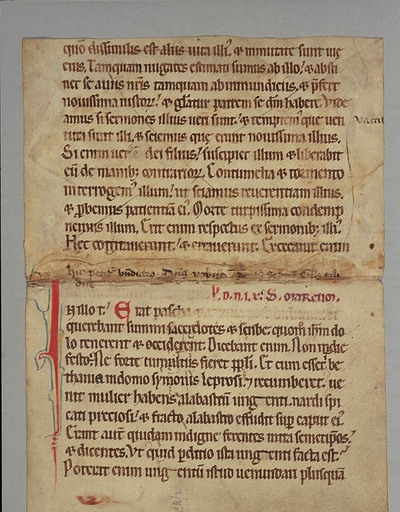 quō dissimilis est aliis uita illiꝰ. & inmutate sunt uie
eiꝰ. Tamquam nugaces estimati sumus ab illo. & absti
net se a uiis nr̄is tamquam ab inmundiciis. & p̄fert
nouissima iustoꝝ. & gl̄iatur patrem se dm̄ habere. Vide
amus si sermones illius ueri sunt. & temptemꝰ que uen
tura sunt illi. & sciemus que erunt nouissima illius.
Si enim uerꝰ ē dei filius. suscipiet illum & liberabit
eū de manibꝫ contrarioꝝ. Contumelia & tormento
interrogemꝰ illum. ut sciamus reuerentiam illius.
& ꝓbemus patientiā eiꝰ. Morte turpissima condemp
nemus illum. Erit enim respectus ex sermonibꝫ illiꝰ.
Hec cogitauerunt. & errauerunt. Excecauit enim
S. marcum.
In illo t̄. Erat pascha
querebant summi sacerdotes & scribe. quom̄ ihm̄ do
lo tenerent & occiderent. Dicebant enim. Non in die
festo. Ne forte tumultus fieret ppl̄i. Et cum esset be
thania in domo symonis leprosi. & recumberet. ue
nit mulier habens alabastrū ungenti nardi spi
cati preciosi. & fracto alabastro effudit sup caput eiꝰ.
Erant autē quidam indigne ferentes intra semetipsos.
& dicentes. Vt quid ꝑditio ista ungenti facta est.
Poterat enim ungentū istud uenundari plusquā